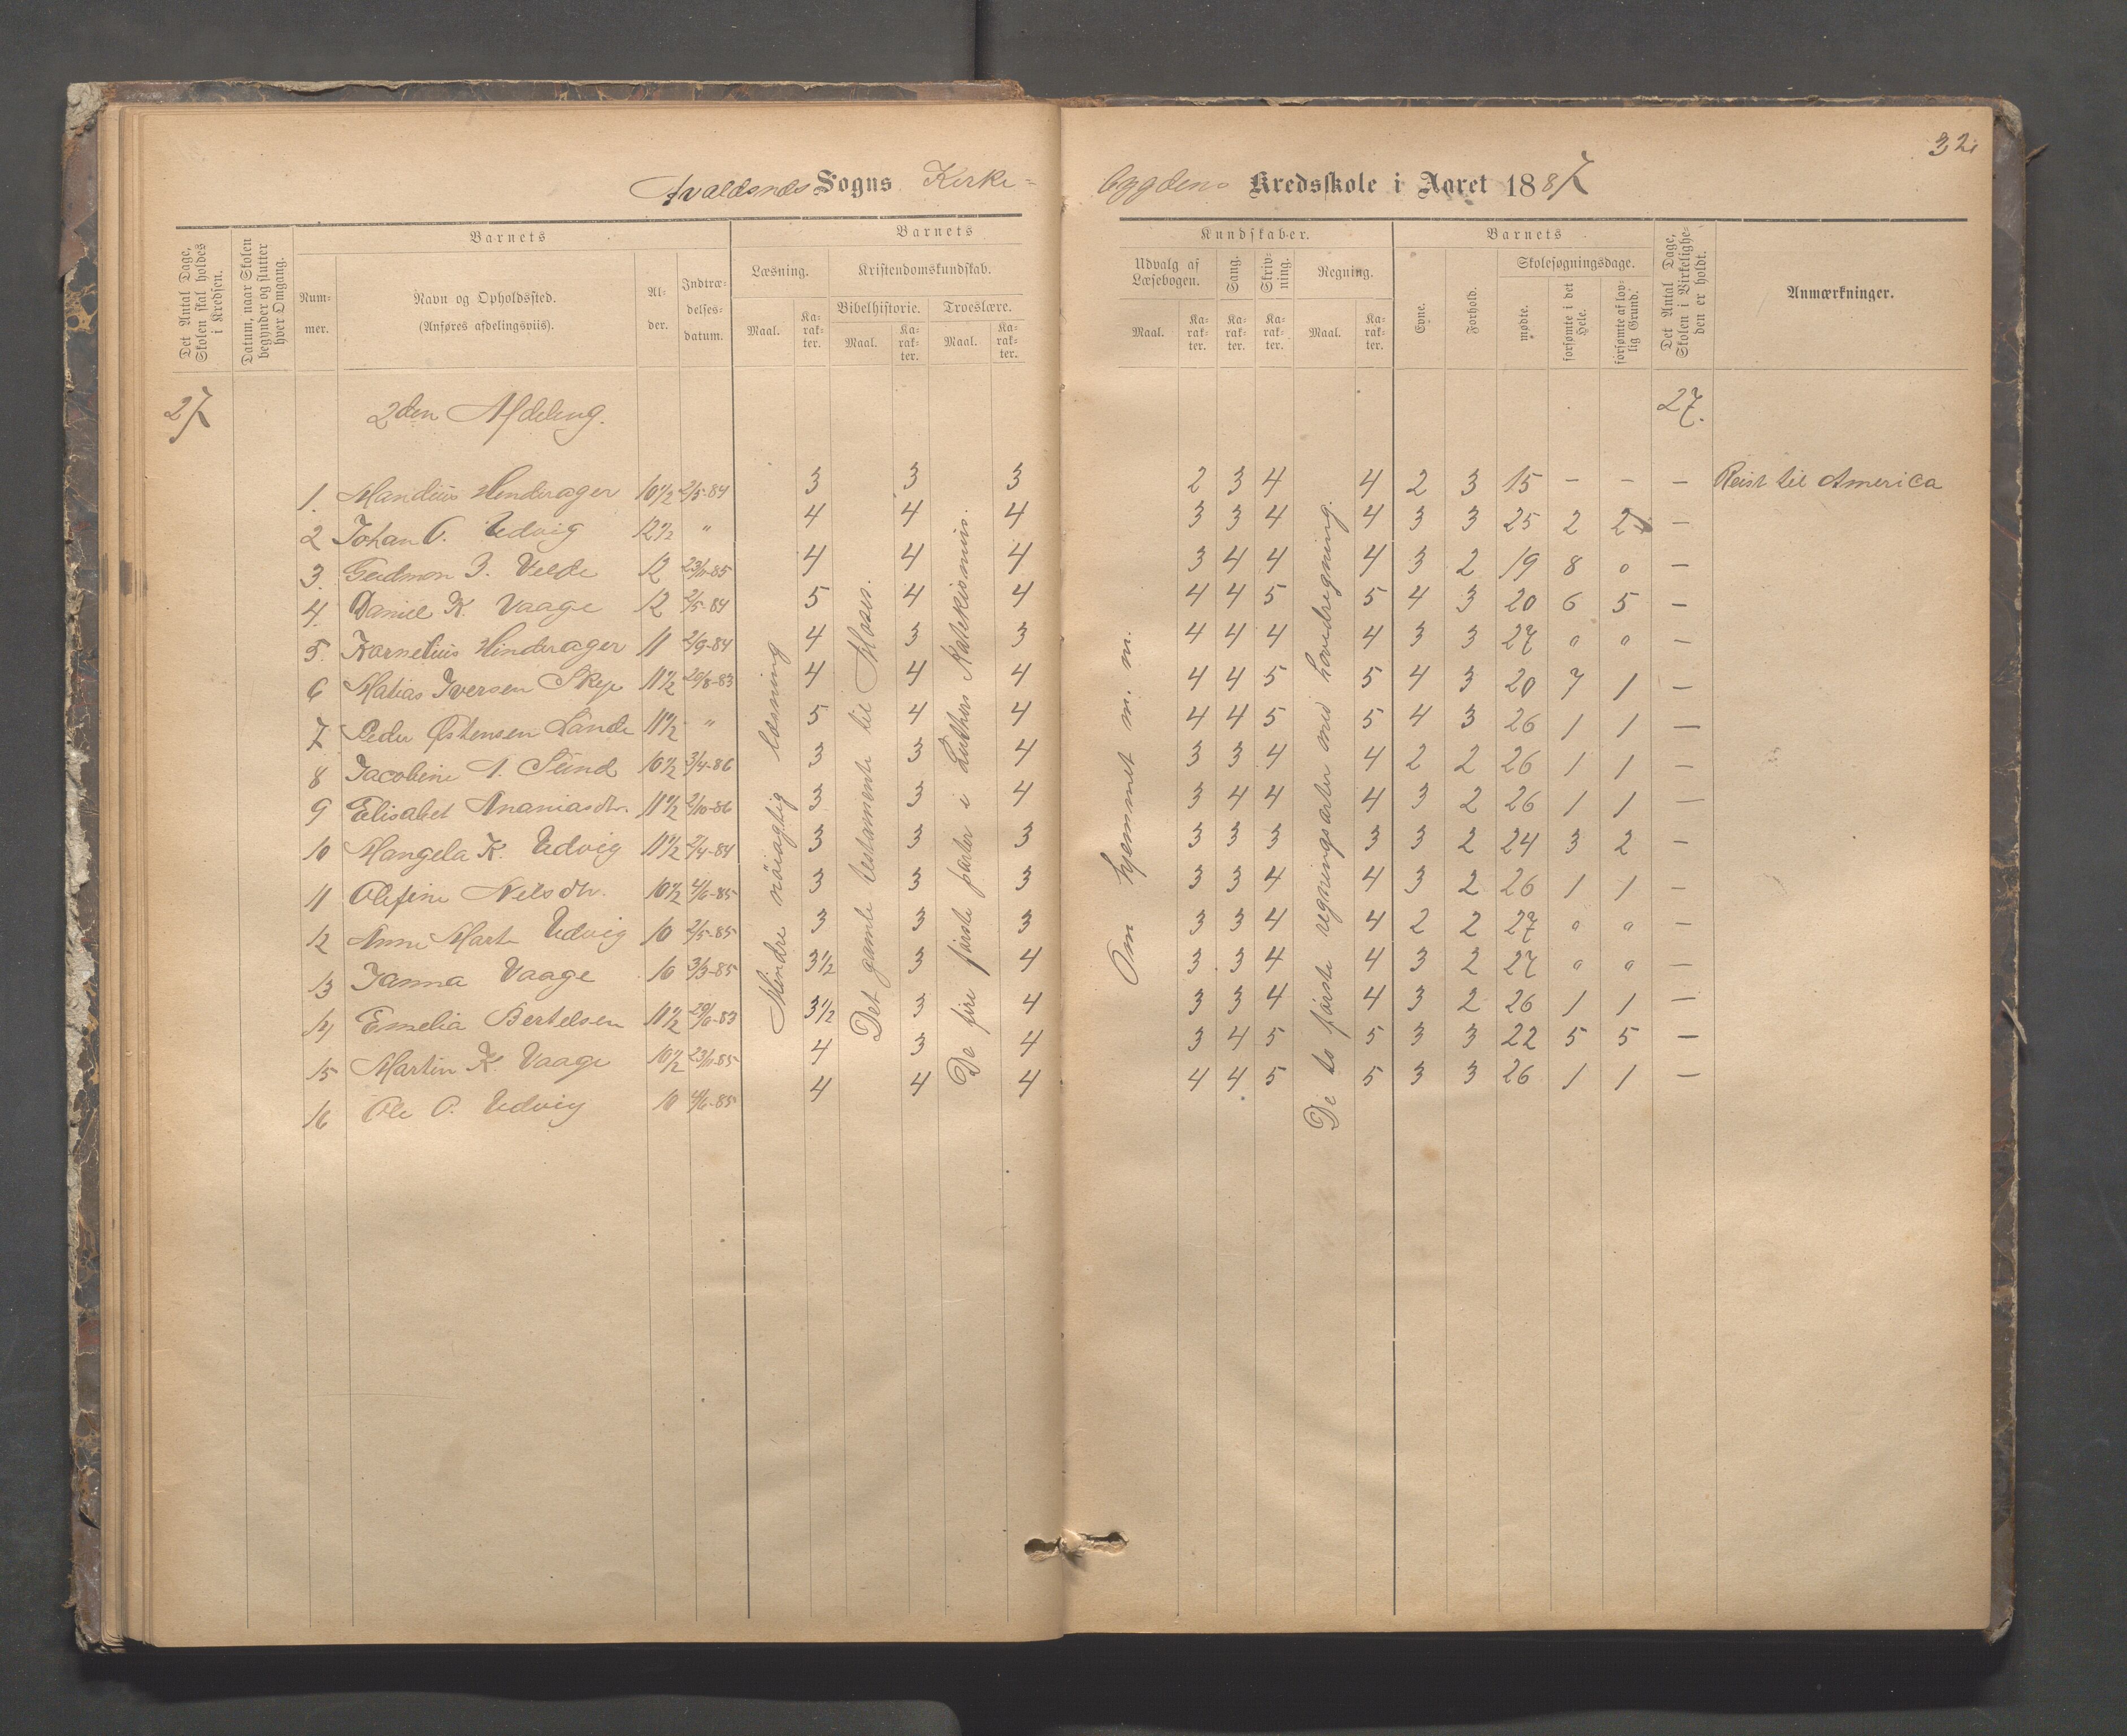 32
Avaldsnes Sogns Kirke- bygdens Kredsskole i Aaret 1887
Det Antal Dage, Skolen skal holdes i Kredsen.
Datum, naar Skolen begynder og slutter hver Omgang.
Barnets
Num- mer.
Navn og Opholdssted. (Anføres afdelingsviis).
Al- der.
Indtræ- delses- datum.
Barnets
Læsning.
Maal.
Ka- rak- ter.
Kristendomskundskab.
Bibelhistorie.
Maal.
Ka- rak- ter.
Troeslære.
Maal.
Ka- rak- ter.
Kundskaber.
Udvalg af Læsebogen.
Maal.
Ka- rak- ter.
Sang.
Ka- rak- ter.
Skriv- ning.
Ka- rak- ter.
Regning.
Maal.
Ka- rak- ter.
Barnets
Evne.
Forhold.
Skolesøgningsdage.
mødte.
forsømte i det Hele.
forsømte af lov- lig Grund.
Det Antal Dage, Skolen i Virkelighe- den er holdt.
Anmærkninger.
27 2den Afdeling. 27.
1. Mandius Hinderager 10 1/2 2/5-84 3 3 3 2 3 4 4 2 3 15 - - - Reist til America
2 Johan O. Udvig 12 1/2 " 4 4 4 3 3 4 4 3 3 25 2 2 -
3. Gudmon J. Velde 12 23/11-85 4 4 4 3 4 4 4 3 2 19 8 0 -
4. Daniel K. Vaage 12 2/5-84 5 4 4 4 4 5 5 4 3 20 6 5 -
5. Kornelius Hinderager 11 2/9-84 4 3 3 4 4 4 4 3 3 27 0 0 -
6 Matias Iversen Skeje 11 1/2 20/8-83 4 4 4 4 4 5 5 4 3 20 7 1 -
7 Peder Østensen Lande 11 1/2 " 5 4 4 4 4 5 5 4 3 26 1 1 -
8 Jacobine A. Sund 10 1/2 3/4-86 3 3 4 3 3 4 4 2 2 26 1 1 -
9 Elisabet Ananiasdtr. 11 1/2 2/10-86 3 3 4 3 4 4 4 3 2 26 1 1 -
10 Mangela K. Udvig 11 1/2 2/4-84 3 3 3 3 3 3 3 3 2 24 3 2 -
11 Olefine Nelsdtr. 10 1/2 4/6-85 3 3 3 3 3 4 4 3 2 26 1 1 -
12 Anne Marte Udvig 10 2/5-85 3 3 3 3 3 4 4 2 2 27 0 0 -
13 Janna Vaage 10 3/3-85 3 1/2 3 4 3 3 4 4 3 2 27 0 0 -
14 Emelia Bertelsen 11 1/2 29/6-83 3 1/2 3 4 3 3 4 4 3 2 26 1 1 -
15 Martin K. Vaage 10 1/2 23/11-85 4 3 4 3 4 5 5 3 3 22 5 5 -
16 Ole O. Udvig 10 4/6-85 4 4 4 4 4 5 5 3 3 26 1 1 -
Mindre nøiagtig læsning
Det gamle testamente til Moses.
De fire første parter i Luthers Katekismus.
Om hjemmet m. m.
De to første regningsarter med hovedregning.